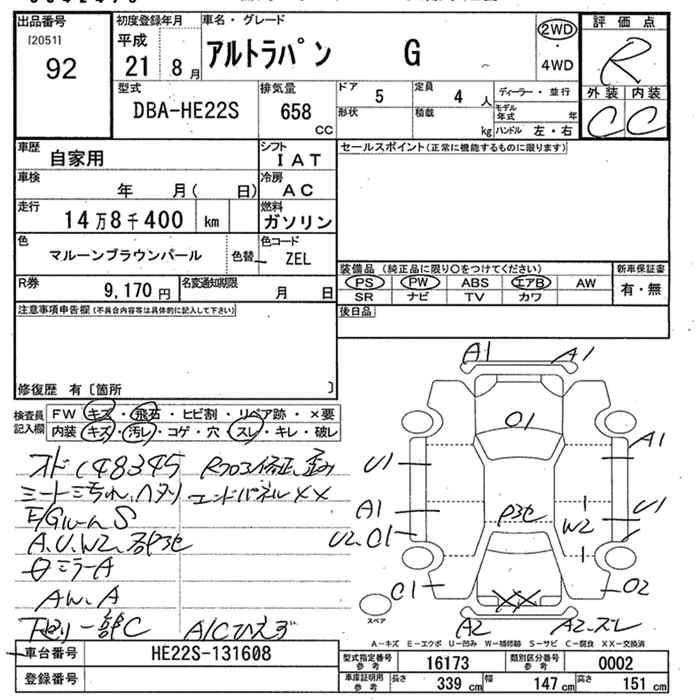 出品番号 初度登録年月 車名・グレード 評価点
[2051] 平成 アルトラパン G 2WD ・ 4WD R
92 21 8月 外装 内装
型式 排気量 ドア 5 定員 4人 ディーラー・並行 C C
DBA-HE22S 658 cc 形状 積載 kg モデル年式 年
ハンドル 左・右
車歴 自家用 シフト IAT セールスポイント(正常に機能するものに限ります)
車検 年 月( 日) 冷房 AC
走行 14万8千400 km 燃料 ガソリン
色 マルーンブラウンパール 色替 色コード ZEL
装備品(純正品に限り○をつけてください) 新車保証書
R券 9,170円 名変通知期限 月 日 PS PW ABS エアB AW 有・無
SR ナビ TV カワ
注意事項申告欄(不具合内容等は具体的に記入して下さい) 後日品
修復歴 有〔箇所 〕
検査員 FW キズ・飛石・ヒビ割・リペア跡・×要
記入欄 内装 キズ・汚レ・コゲ・穴・スレ・キレ・破レ
A1 A1
01
A1
U1
A1 U1
W2
U2.01
C1 02
XX
A2 A2.スレ
オド148345
エンドパネルXX
E/GルームS
A.U.W2.
ミラーA
AW.A
下廻り一部C A/Cひえず
スペア
A-キズ E-エクボ U-凹み W-補修跡 S-サビ C-腐食 XX-交換済
車台番号 HE22S-131608
型式指定番号 参考 16173 類別区分番号 参考 0002
登録番号
車庫証明用 参考 長さ 339 cm 幅 147 cm 高さ 151 cm